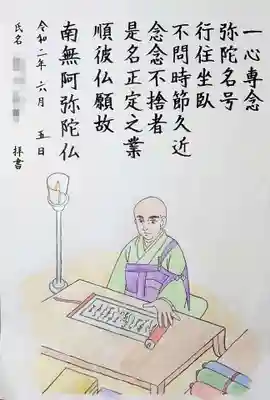 一心専念
弥陀名号
行住坐臥
不問時節久近
念念不捨者
是名正定之業
順彼仏願故
南無阿弥陀仏
令和二年六月五日
氏名
拝書